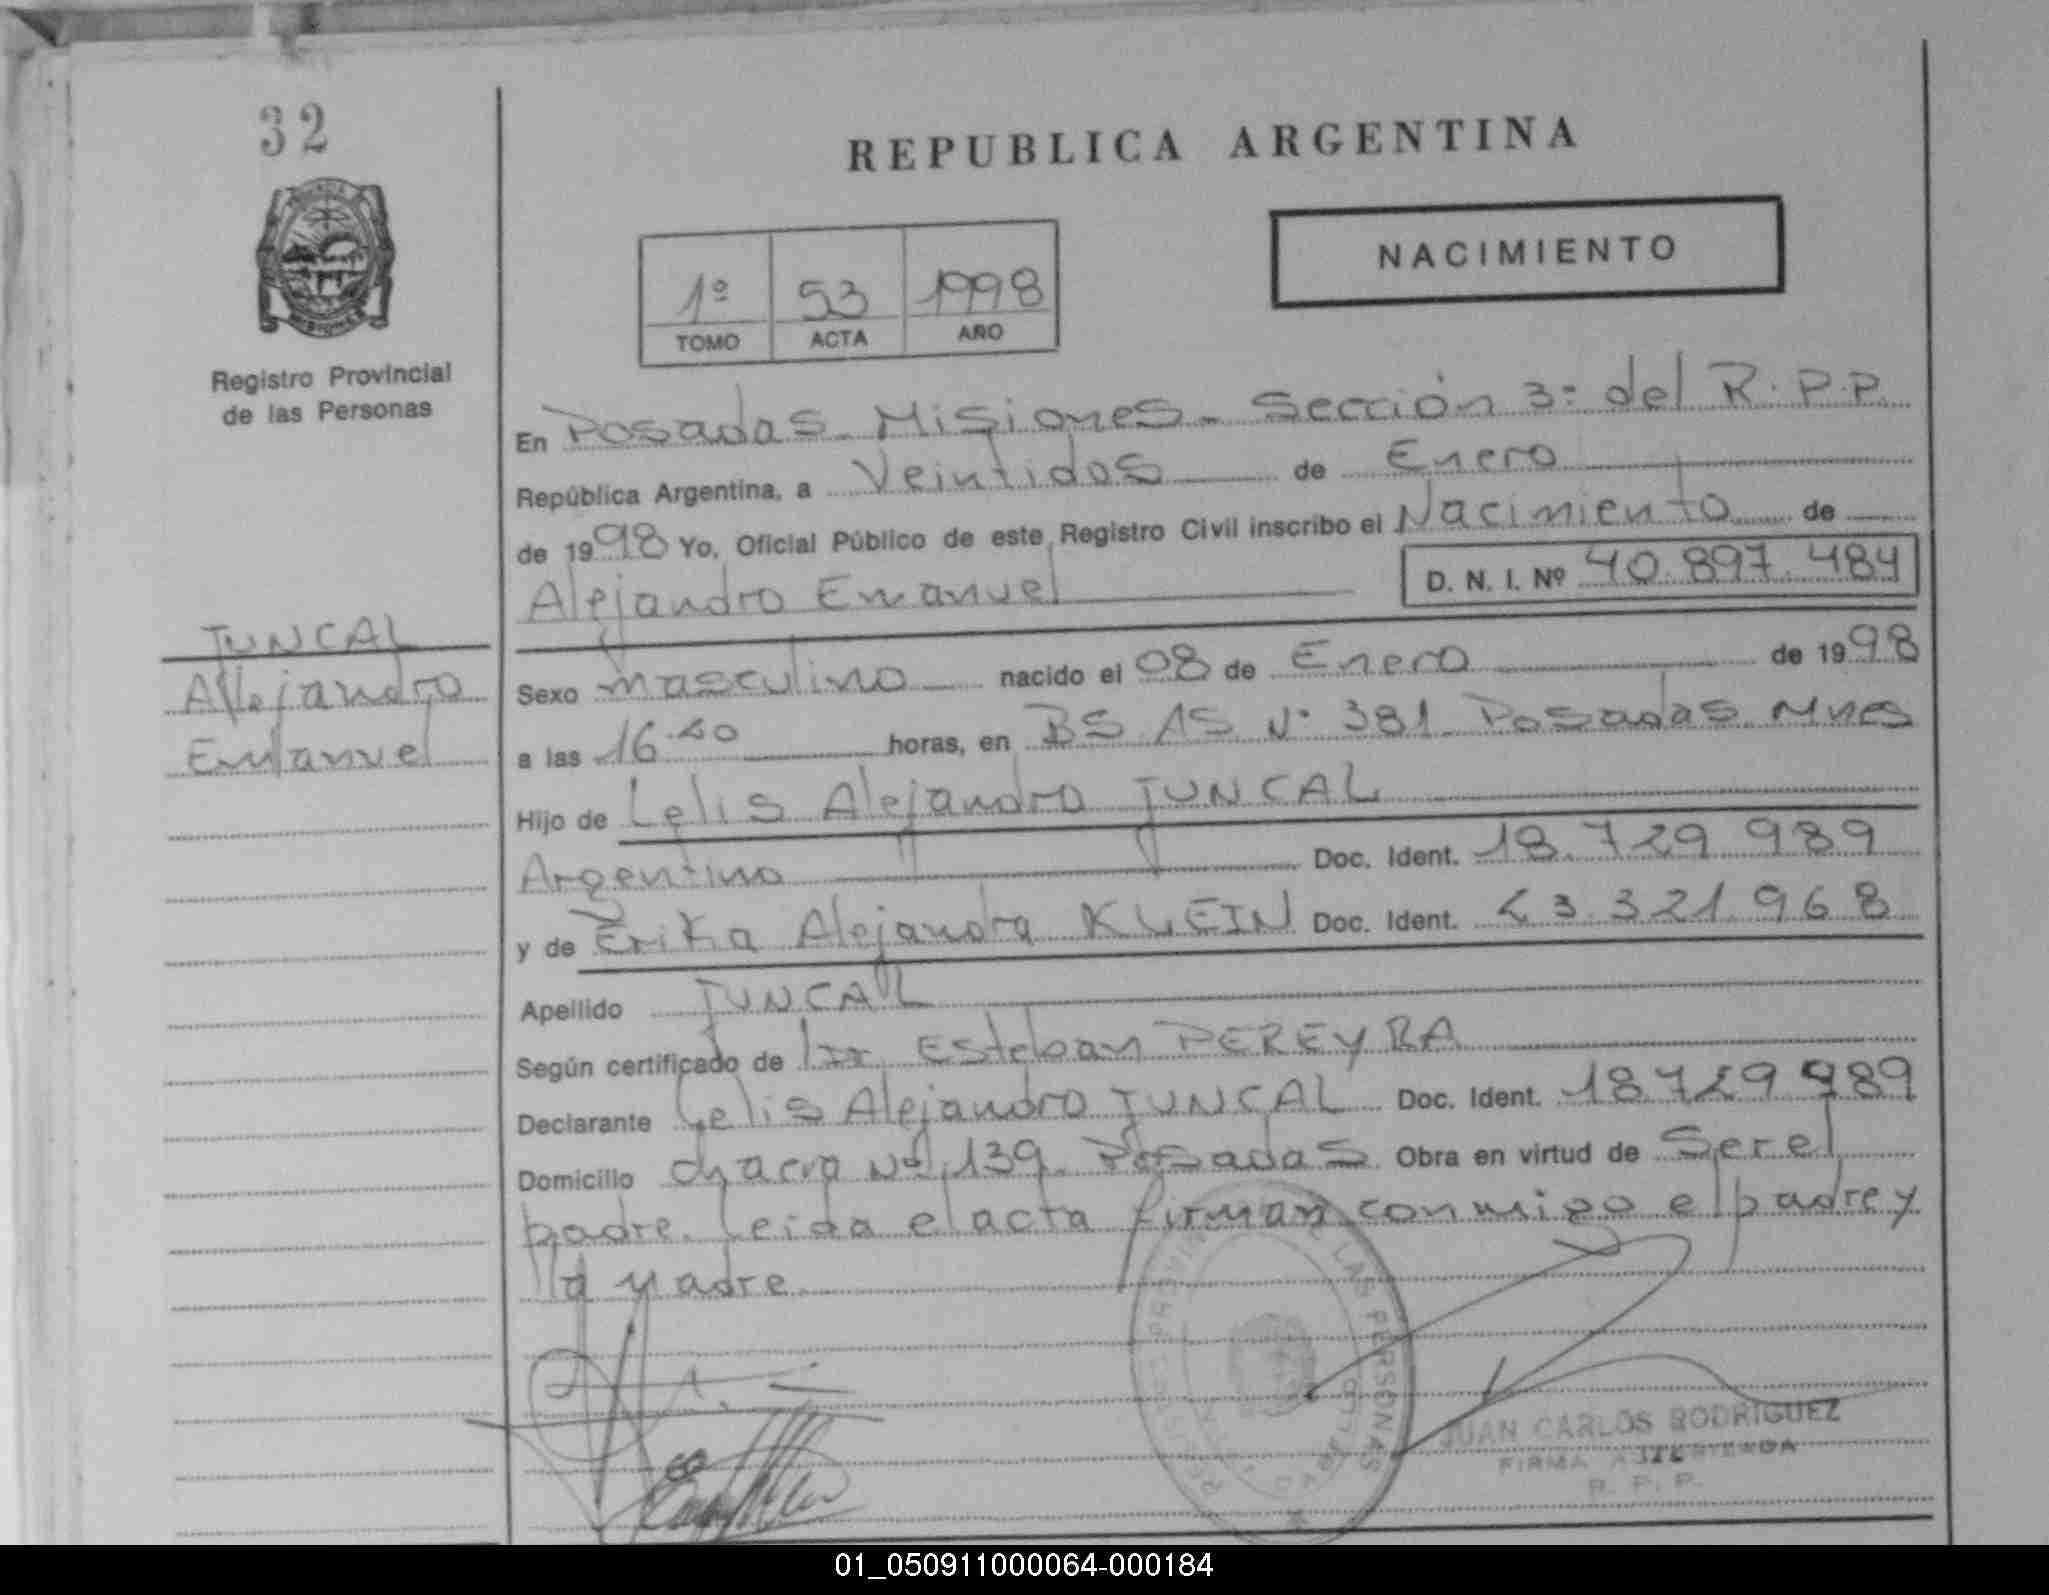 32
REPUBLICA ARGENTINA
NACIMIENTO
1º 53 1998
TOMO ACTA AÑO
MISIONES
Registro Provincial
de las Personas
En Posadas Misiones - Sección 3º del R.P.P.
República Argentina, a Veintidos de Enero
de 1998 Yo, Oficial Público de este Registro Civil inscribo el Nacimiento de
Alejandro Emanuel D. N. I. Nº 40.897.484
JUNCAL
Alejandro
Emanuel
Sexo masculino nacido el 08 de Enero de 1998
a las 16.40 horas, en BS AS Nº 381 Posadas Mnes
Hijo de Lelis Alejandro JUNCAL
Argentino Doc. Ident. 18.729.989
y de Erika Alejandra KLEIN Doc. Ident. 23.321.968
Apellido JUNCAL
Según certificado de Esteban PEREYRA
Declarante Lelis Alejandro JUNCAL Doc. Ident. 18729989
Domicilio chacra Nº 139. Posadas Obra en virtud de Ser el
padre. Leida el acta firman conmigo el padre y
la madre
LAS PERSONAS
JUAN CARLOS RODRIGUEZ
FIRMA AUTORIZADA
R. P. P.
01_050911000064-000184